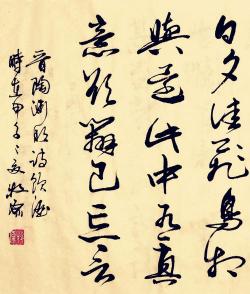 日夕佳飛鳥相
與還此中有真
意欲辯已忘言
晉陶淵明詩飲酒
時在甲子之夏